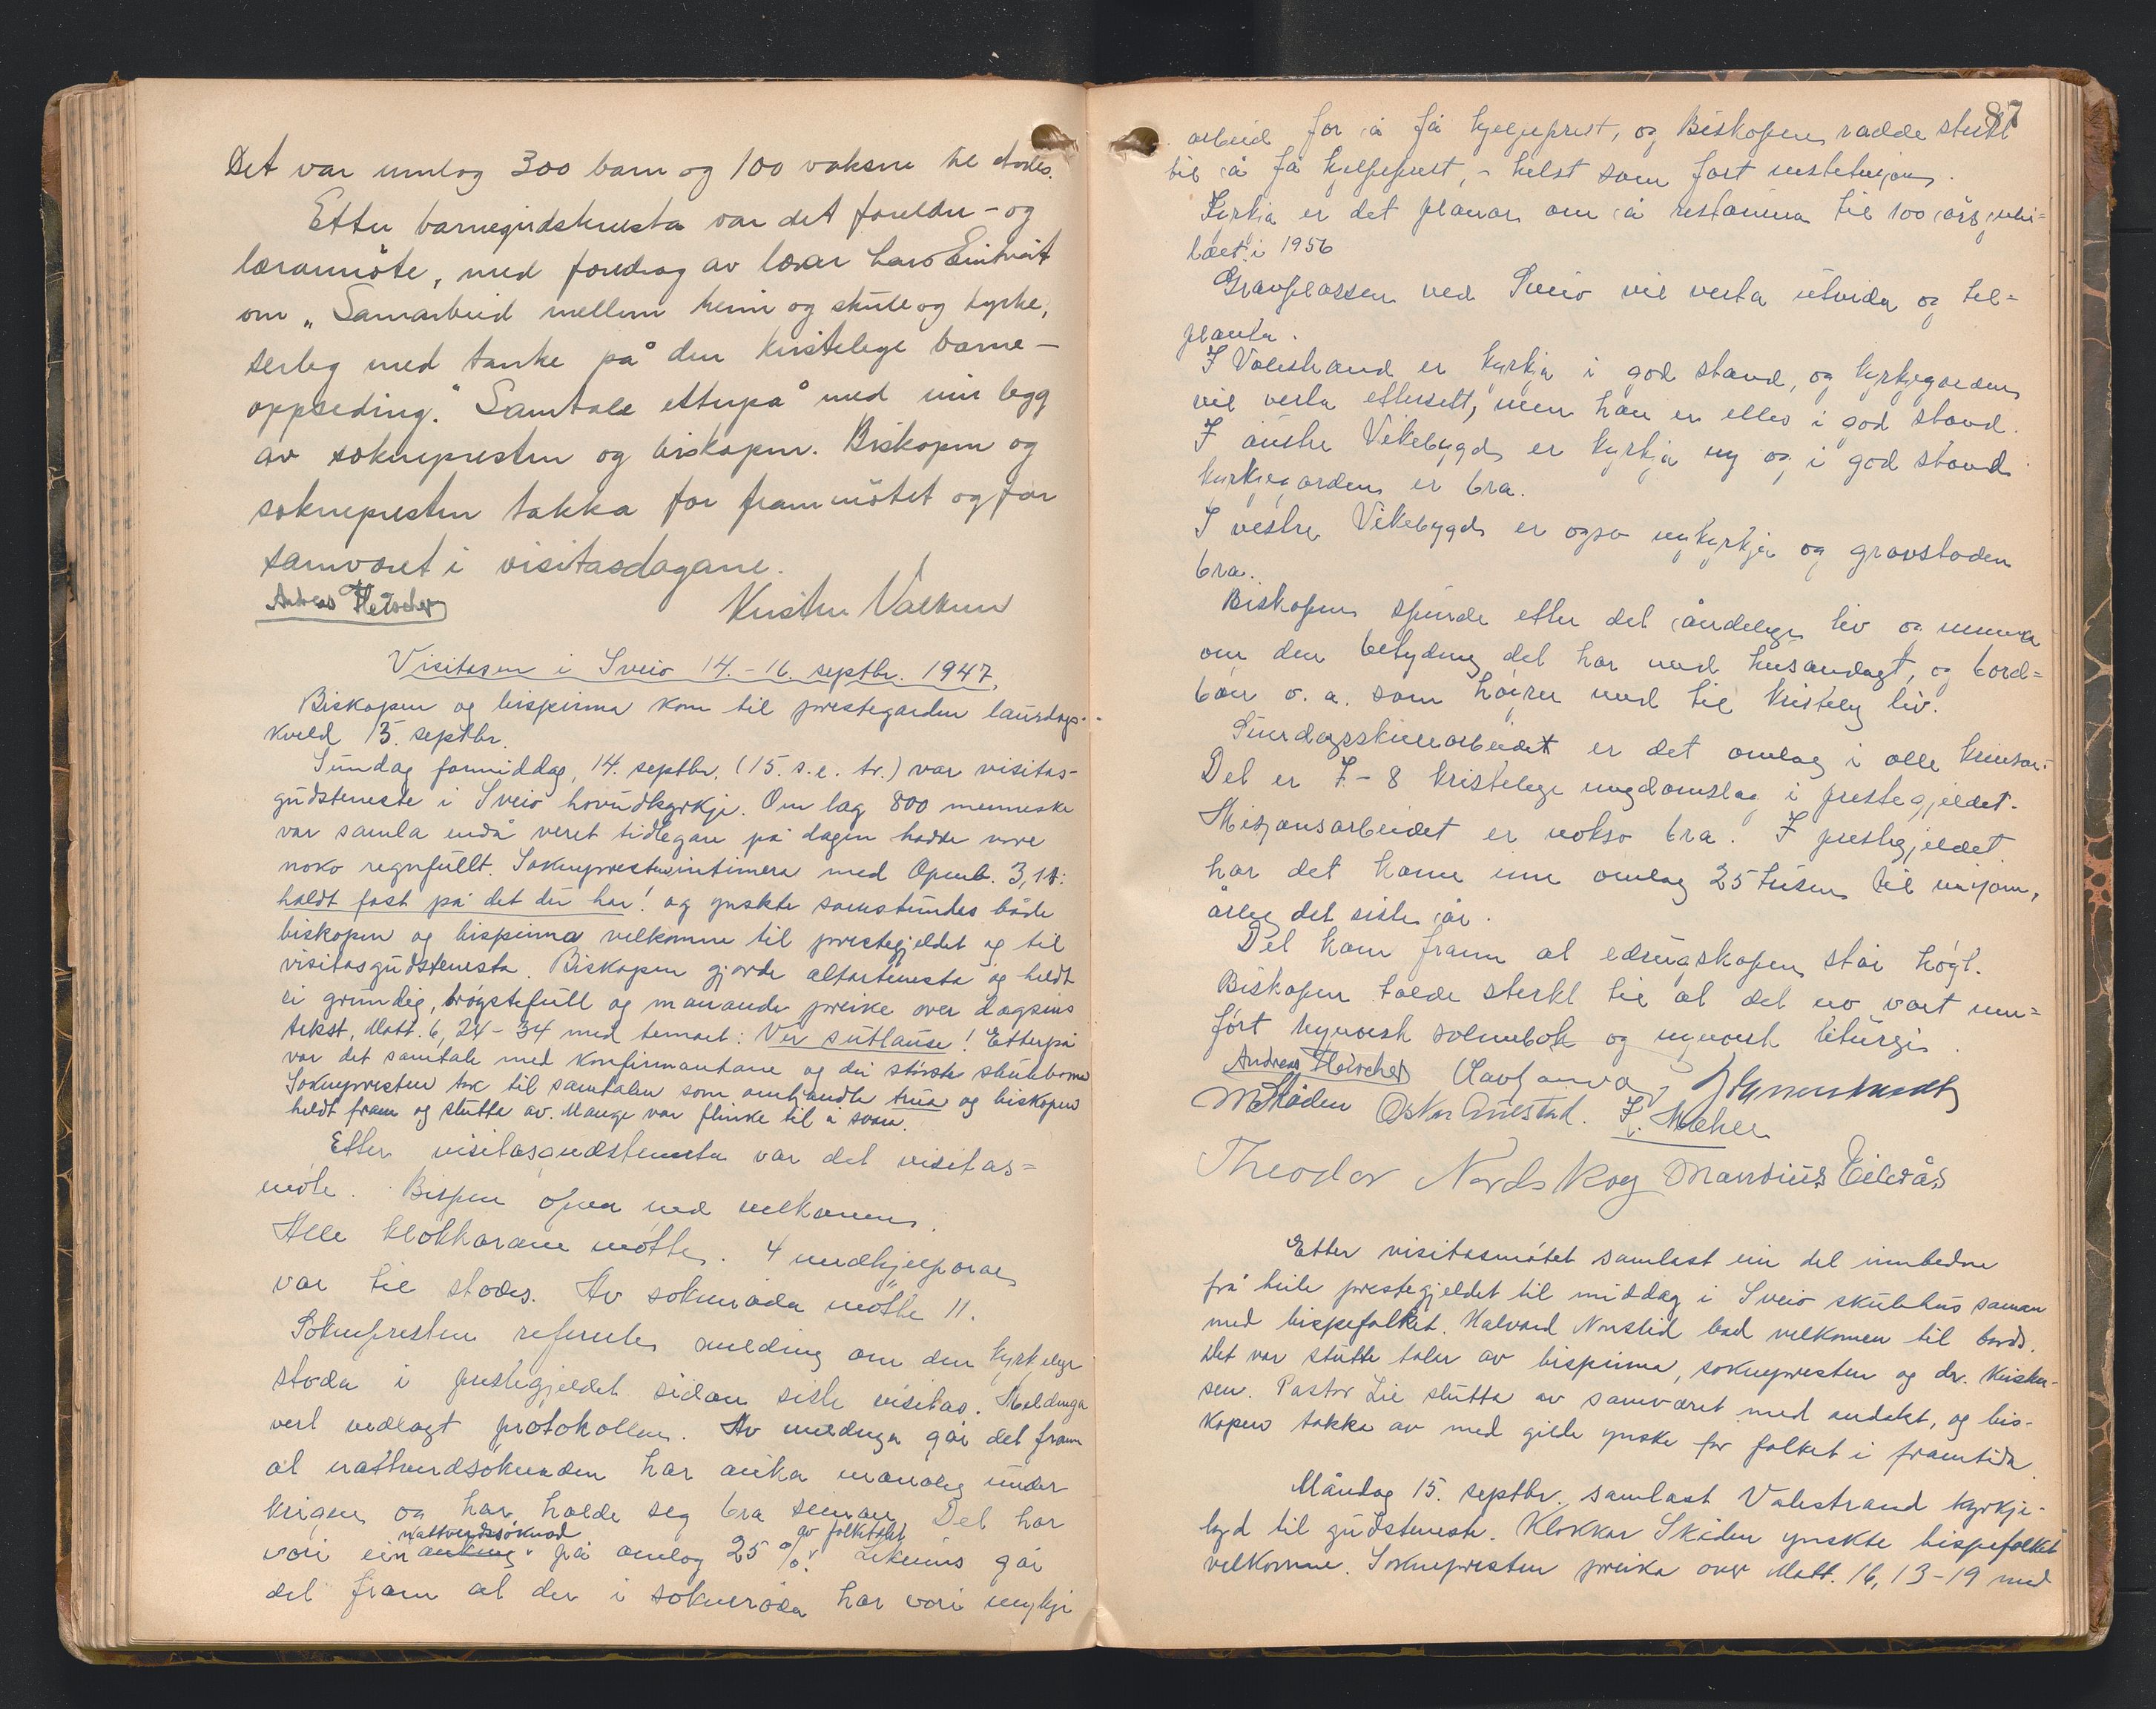 Det var umlag 300 barn og 100 vaksne til stades.
Etter barnegudstenesta var det foreldre- og
lærarmöte, med foredrag av lærar Lars Eintveit
om „Samarbeid mellom heim og skule og kyrke,
serleg med tanke på den kristelege barne-
oppseding." Samtale etterpå med inn legg
av soknepresten og biskopen. Biskopen og
soknepresten takka for frammötet og for
samværet i visitasdagane.
Andreas Fleischer
Kristen Valkner
Visitasen i Sveio 14.-16. septbr. 1947.
Biskopen og bispinna kom til prestegarden laurdags-
kveld 13. septbr.
Sundag formiddag, 14. septbr. (15. s.e. tr.) var visitas-
gudsteneste i Sveio hovudkyrkje. Om lag 800 menneske
var samla endå veret tidlegare på dagen hadde vore
noko regnfullt. Soknepresten intimera med Openb. 3,11:
haldt fast på det du har! og ynskte samstundes både
biskopen og bispinna velkomne til prestegjeldet og til
visitasgudstenesta. Biskopen gjorde altartenesta og heldt
ei grundig, trøystefull og manande preike over dagsens
tekst, Matt. 6, 24-34 med temaet: Ver sutlause! Etterpå
var det samtale med konfirmantane og dei største skuleborna
Soknepresten tok til samtalen som omhandla trua og biskopen
heldt fram og slutta av. Mange var flinke til å svara.
Etter visitasgudstenesta var det visitas=
møte. Bispen opna med velkomen.
Alle klokkarane møtte. 4 medhjelparar
var til stades. Av sokneråda møtte 11.
Soknepresten refererte melding om den kyrkjelege
stoda i prestegjeldet sidan siste visitas. Meldinga
vert vedlagt protokollen. Av meldinga går det fram
at nattverdsøknaden har auka monaleg under
krigen og har halde seg bra seinan. Det har
vori ein nattverdsøknad på omlag 25 % av folketalet. Likeins går
det fram at der i sokneråda har vori mykje
87
arbeid for å få hjelpeprest, og Biskopen rådde sterkt
til å få hjelpeprest, - helst som fast institusjon.
Kyrkja er det planar om å restaurera til 100 års jubi=
læet i 1956
Gravplassen ved Sveio vil verta utvida og til=
planta.
I Valestrand er kyrkja i god stand, og kyrkjegarden
vil verta ettersett, men han er elles i god stand.
I austre Vikebygd er kyrkja ny og i god stand
kyrkjegarden er bra.
I vestre Vikebygd er også nykyrkja og gravstaden
bra.
Biskopen spurde etter det åndelege liv og minna
om den betydning det har med husandagt, og bord=
bøn o. a. som høirer med til kristeleg liv.
Sundagsskulearbeidet er det omlag i alle krinsar.
Det er 7-8 kristelege ungdomslag i prestegjeldet.
Misjonsarbeidet er nokso bra. I prestegjeldet
har det kome inn omlag 25 tusen til misjonen,
årleg det siste år.
Det kom fram at edruskapen står høgt.
Biskopen talde sterkt til at det no vart inn=
ført nynorsk salmebok og nynorsk liturgi.
Andreas Fleischer
M Skåden Oskar Aurstad. K. Mæhle
Theodor Nordskog Mandius Eilerås
Etter visitasmøtet samlast ein del innbedne
frå heile prestegjeldet til middag i Sveio skulehus saman
med bispefolket. Halvard Norstid bad velkomen til bords.
Det var stutte talar av bispinna, soknepresten og dr. Kristen-
sen. Pastor Lie slutta av samværet med andakt, og bis-
kopen takka av med gilde ynske for folket i framtida.
Måndag 15. septbr. samlast Valestrand kyrkje-
lyd til gudsteneste. Klokkar Skåden ynskte bispefolket
velkomne. Soknepresten preika over Matt. 16, 13-19 med